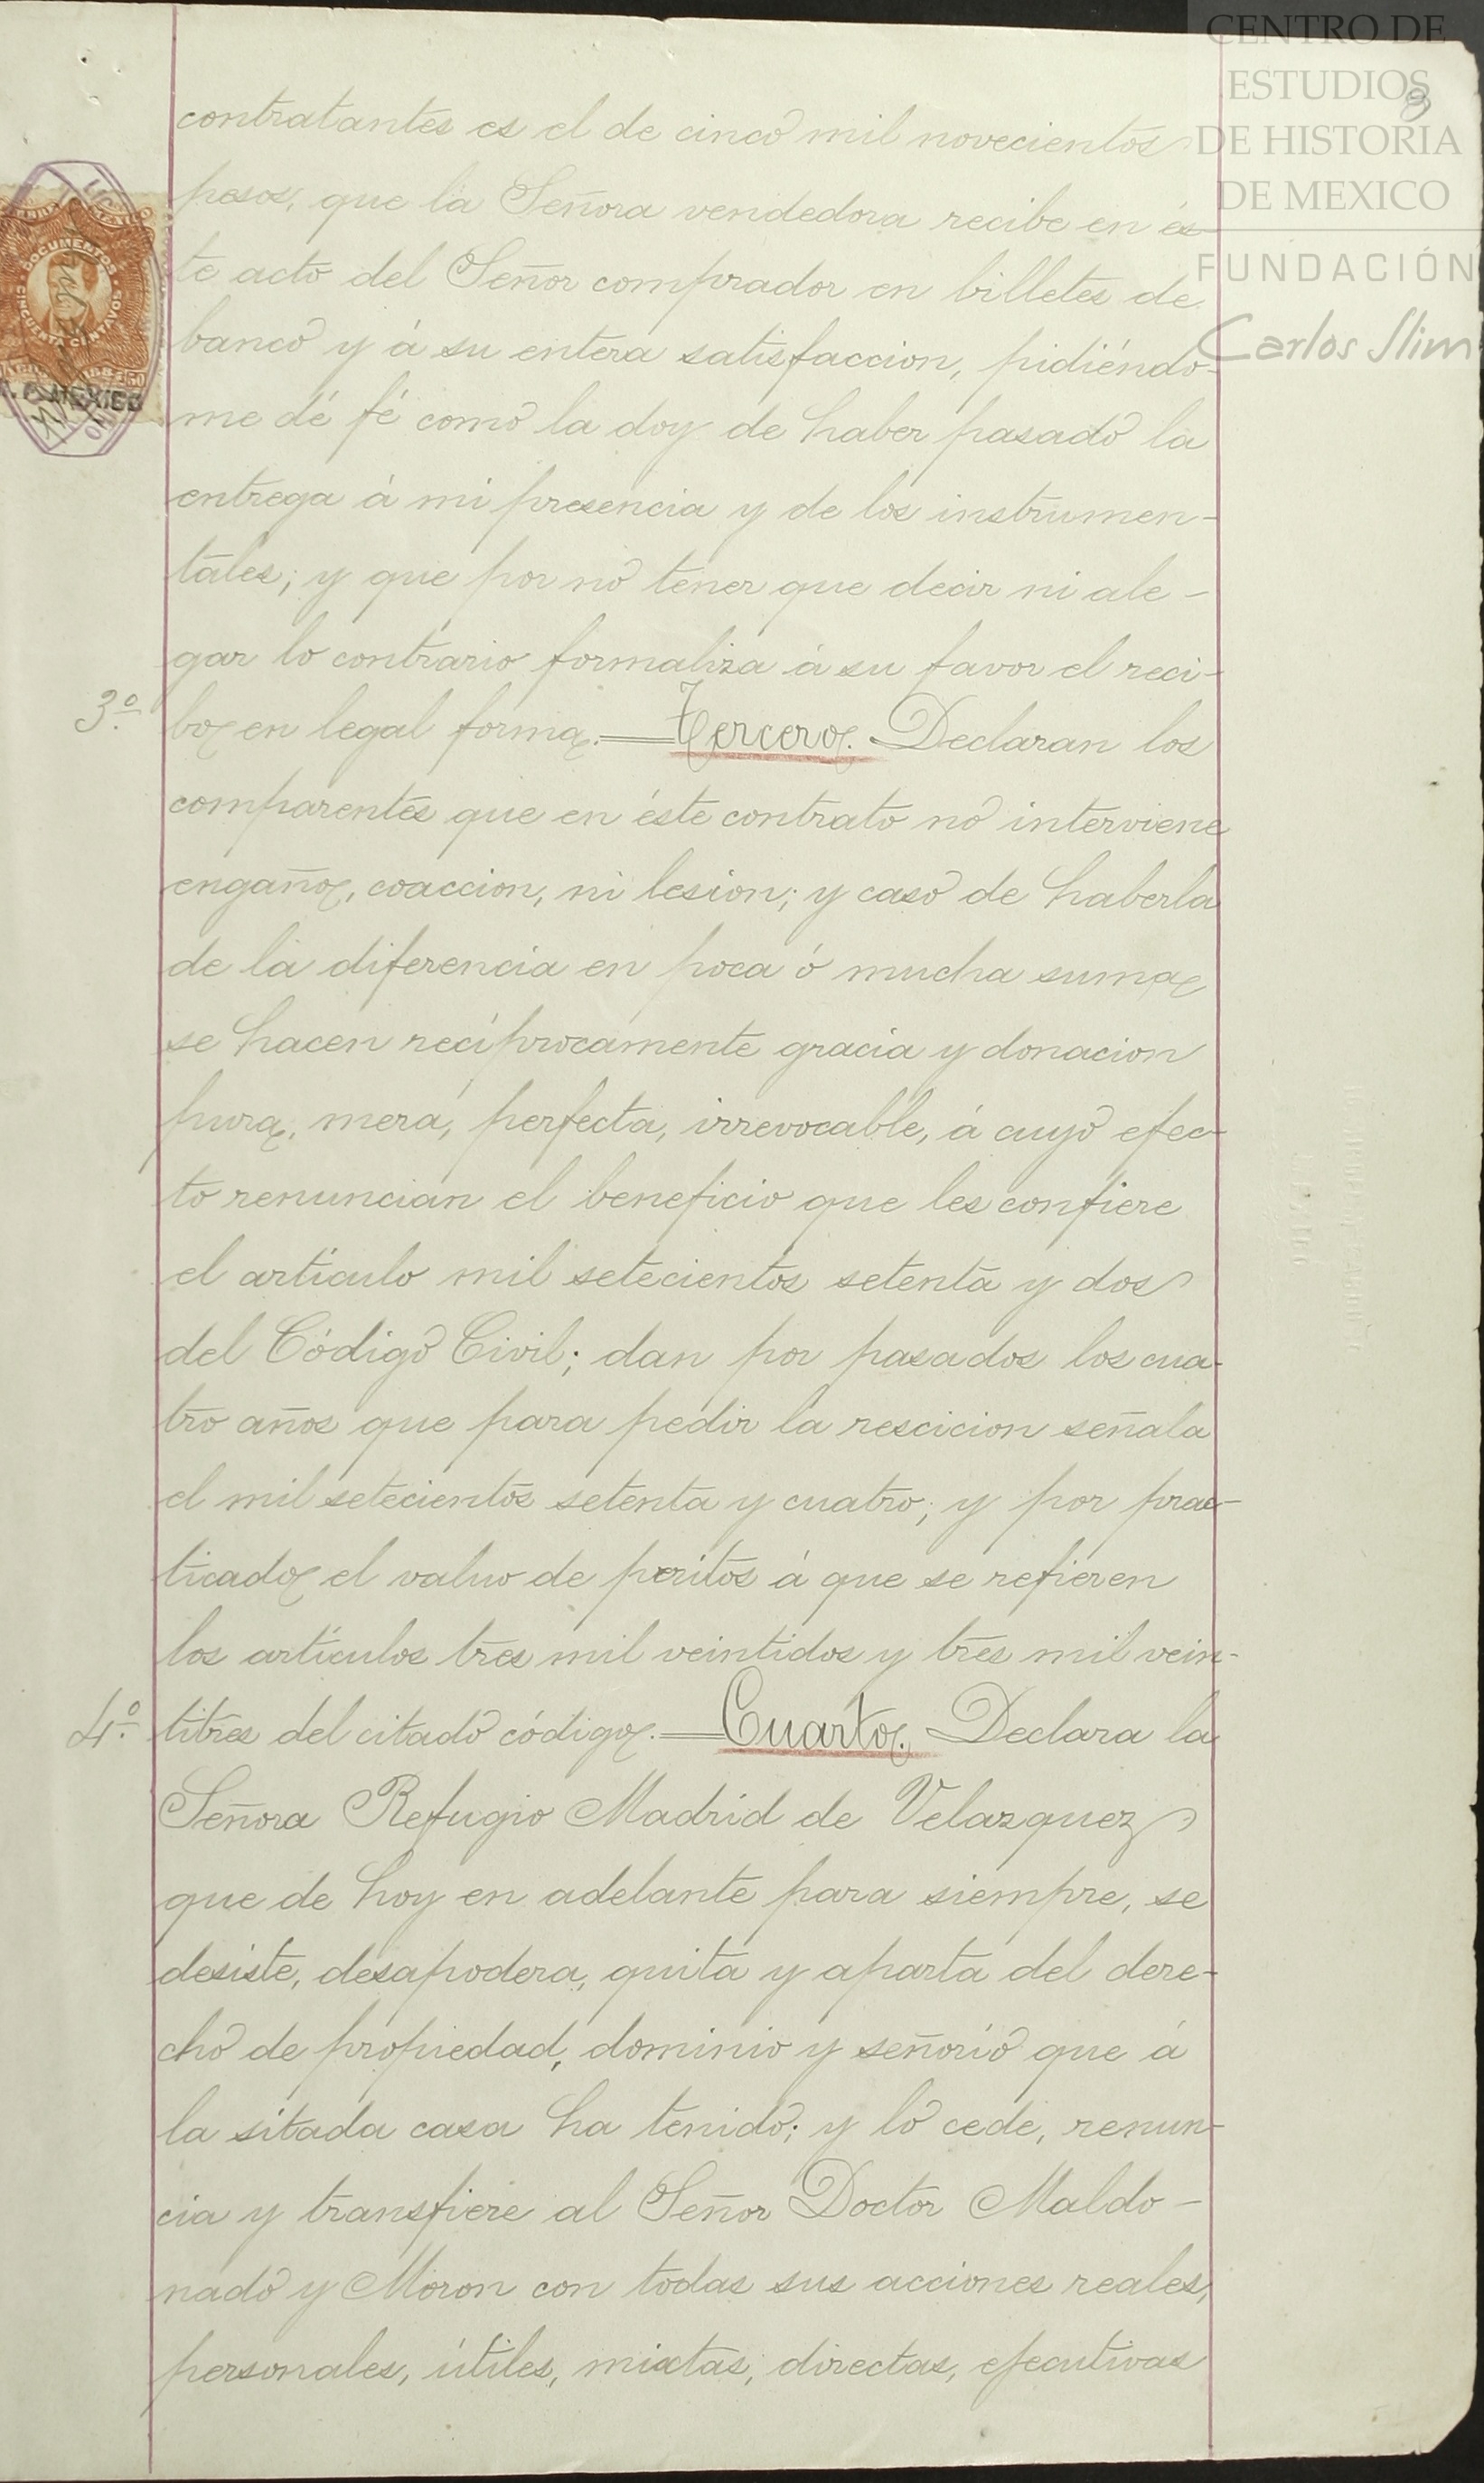 CENTRO DE
ESTUDIOS
DE HISTORIA
DE MEXICO
FUNDACIÓN
Carlos Slim
8
contratantes es el de cinco mil novecientos
pesos, que la Señora vendedora recibe en és-
te acto del Señor comprador en billetes de
banco y á su entera satisfaccion, pidiéndo-
me dé fé como la doy de haber pasado la
entrega á mi presencia y de los instrumen-
tales; y que por no tener que decir ni ale-
gar lo contrario formaliza á su favor el reci-
3º bo en legal forma.= Tercero. Declaran los
comparentes que en éste contrato no interviene
engaño, coaccion, ni lesion; y caso de haberla
de la diferencia en poca ó mucha suma
se hacen recíprocamente gracia y donacion
pura, mera, perfecta, irrevocable, á cuyo efec-
to renuncian el beneficio que les confiere
el artículo mil setecientos setenta y dos
del Código Civil; dan por pasados los cua-
tro años que para pedir la rescicion señala
el mil setecientos setenta y cuatro; y por prac-
ticado el valuo de peritos á que se refieren
los artículos tres mil veintidos y tres mil vein-
4º titres del citado código.= Cuarto. Declara la
Señora Refugio Madrid de Velazquez
que de hoy en adelante para siempre, se
desiste, desapodera, quita y aparta del dere-
cho de propiedad, dominio y señorío que á
la sitada casa ha tenido; y lo cede, renun-
cia y transfiere al Señor Doctor Maldo-
nado y Moron con todas sus acciones reales,
personales, útiles, mixtas, directas, ejecutivas
DOCUMENTOS
CINCUENTA CENTAVOS
MEXICO